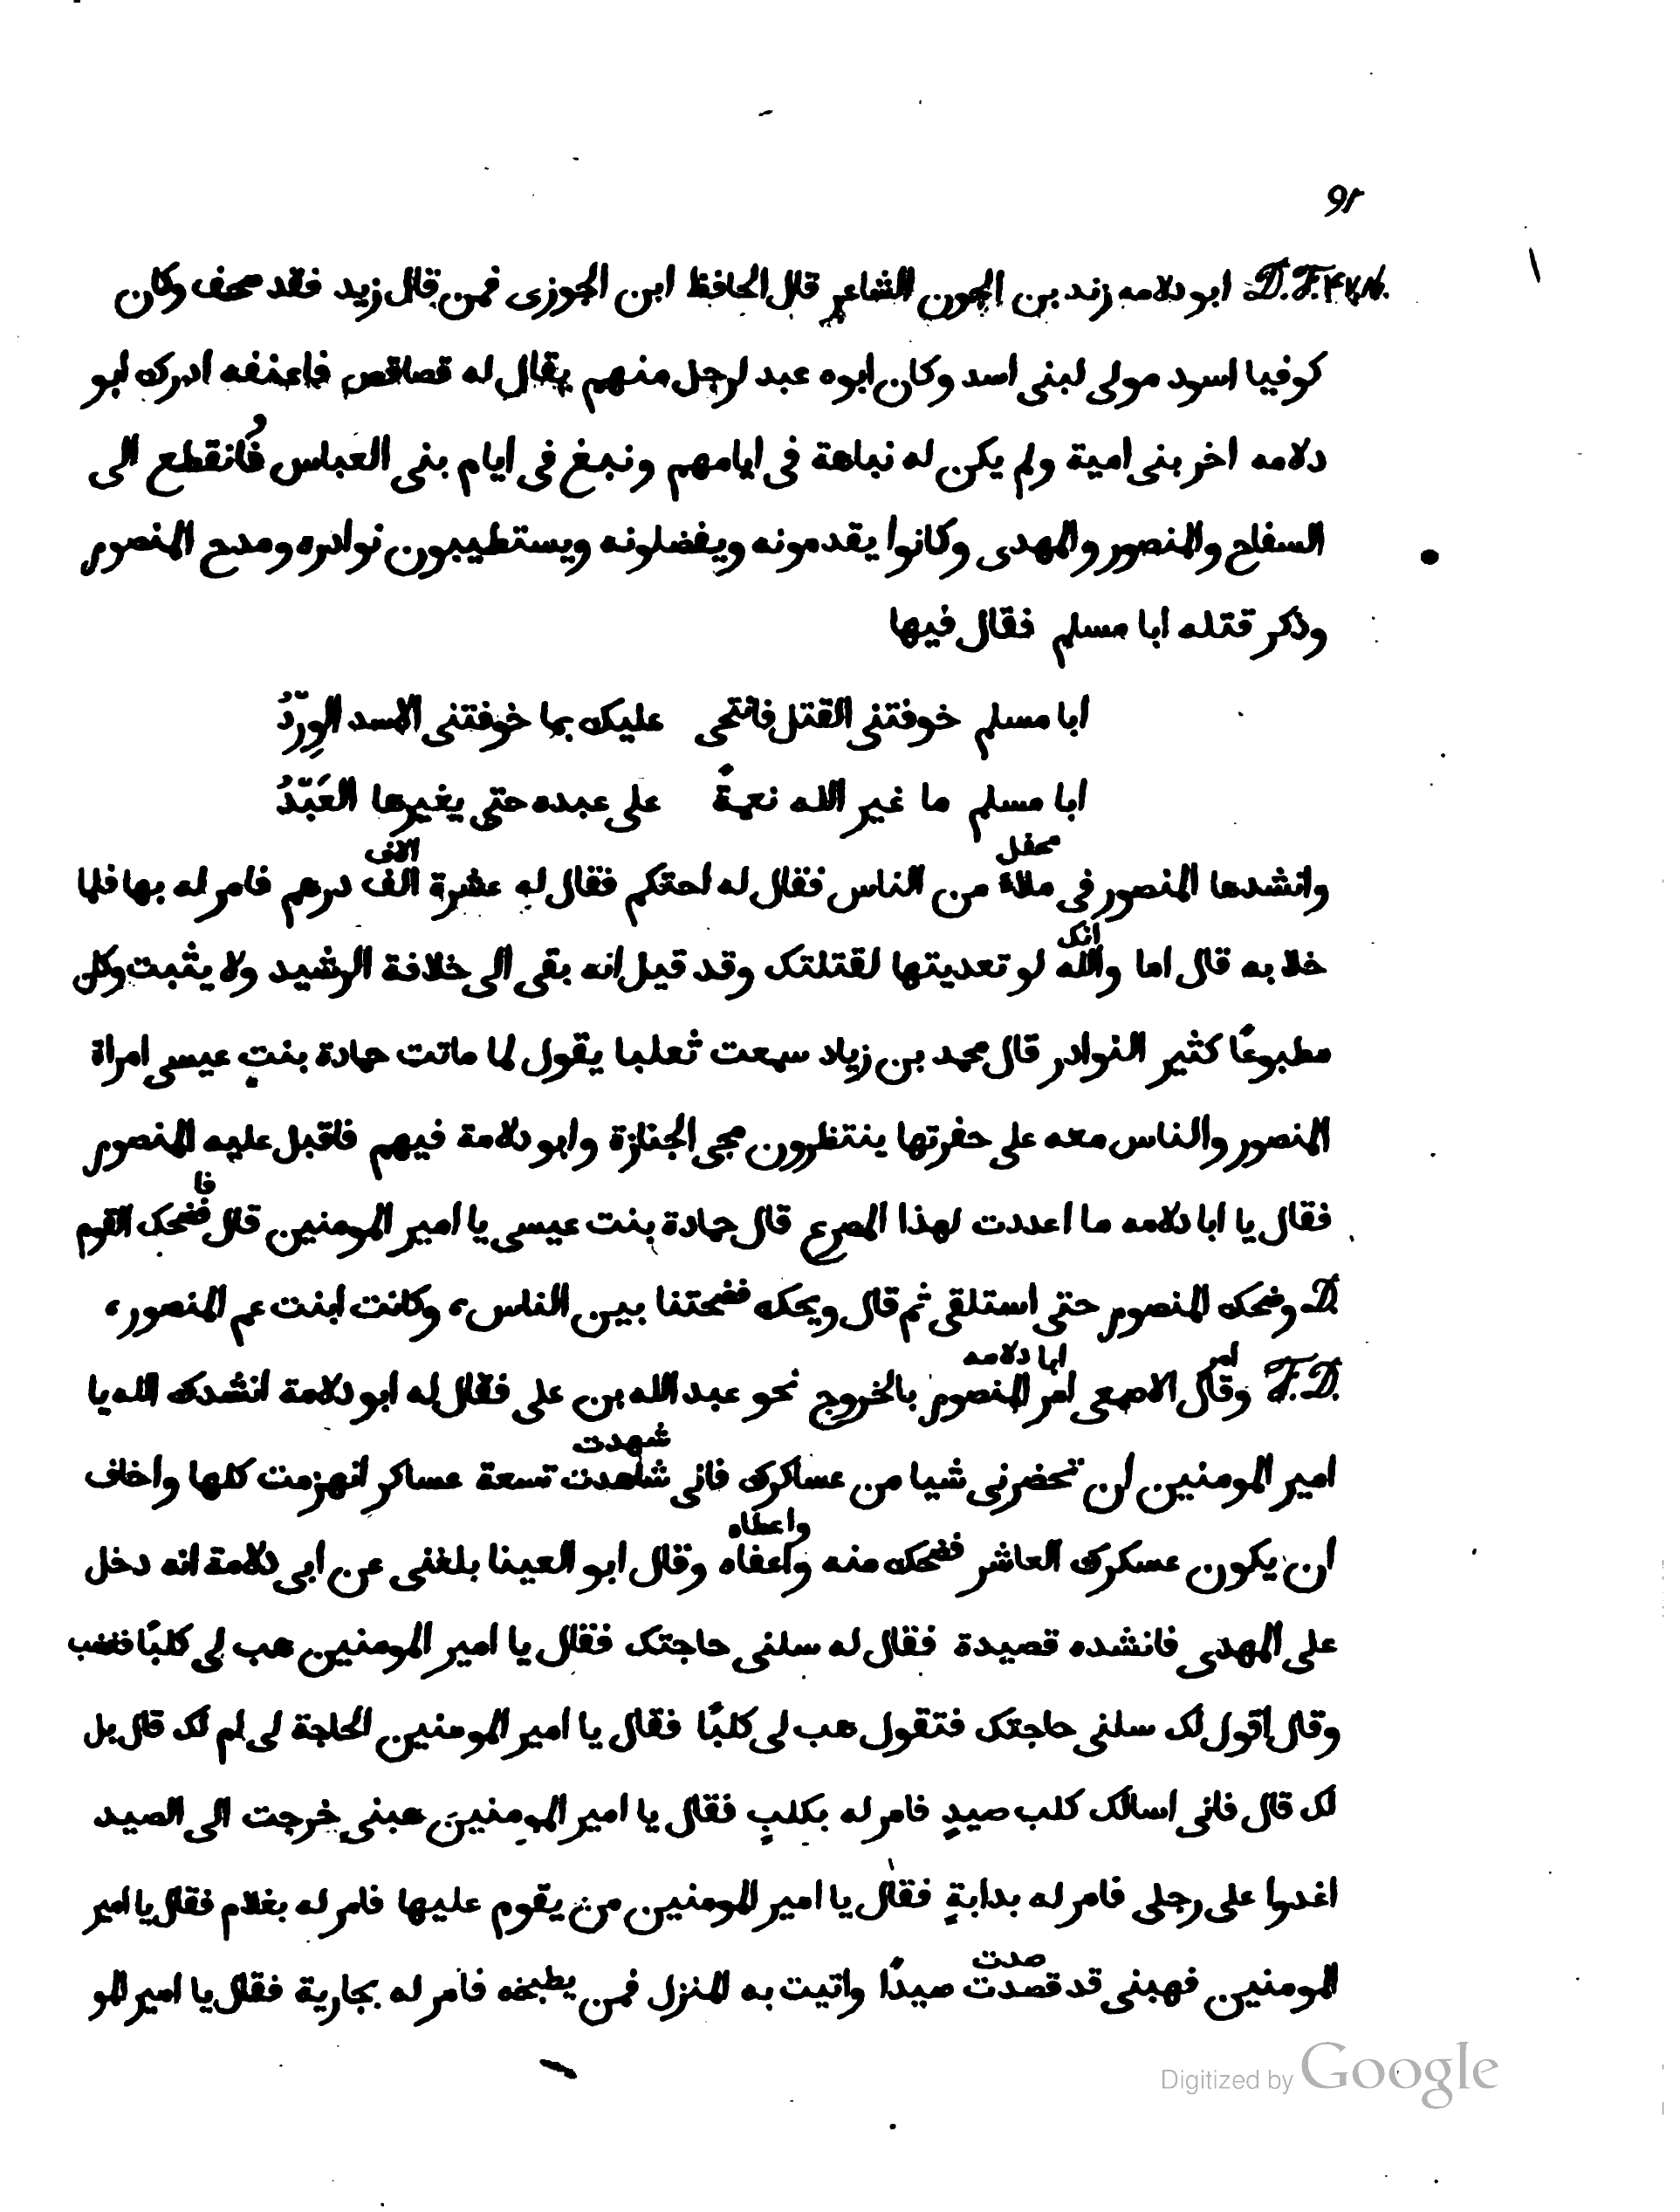 ٩٢
D. F. ٢٤٧. ابو دلامه زند بن الجون الشاعر قال الحافظ ابن الجوزى فمن قال زيد فقد صحف وكان
كوفيا اسود مولى لبنى اسد وكان ابوه عبد لرجل منهم يقال له قصاقص فاعتقه ادرك ابو
دلامه اخر بنى امية ولم يكن له نباهة فى ايامهم ونبغ فى ايام بنى العباس فانقطع الى
السفاح والمنصور والمهدى وكانوا يقدمونه ويفضلونه ويستطيبون نوادره ومدح المنصور
وذكر قتله ابا مسلم فقال فيها
ابا مسلم خوفتنى القتل فانتحى عليك بما خوفتنى الاسد الوِردُ
ابا مسلم ما غير الله نعمةً على عبده حتى يغيرها العَبدُ
محفل الاف
وانشدها المنصور فى ملاء من الناس فقال له احتكم فقال له عشرة الف درهم فامر له بها فلما
انك
خلا به قال اما والله لو تعديتها لقتلتك وقد قيل انه بقى الى خلافة الرشيد ولا يثبت وكان
مطبوعًا كثير النوادر قال محمد بن زياد سمعت ثعلبا يقول لما ماتت حمادة بنت عيسى امراة
المنصور والناس معه على حفرتها ينتظرون مجى الجنازة وابو دلامة فيهم فاقبل عليه المنصور
فا
فقال يا ابا دلامه ما اعددت لهذا المصرع قال حمادة بنت عيسى يا امير المومنين قال فضحك القوم
D. وضحك المنصور حتى استلقى ثم قال ويحك فضحتنا بين الناس، وكانت ابنت عم المنصور،
امر ابا دلامه
F. D. وقال الاصمعى امر المنصور بالخروج نحو عبد الله بن على فقال له ابو دلامة انشدك الله يا
شهدت
امير المومنين ان تحضرنى شيا من عساكرك فانى شاهدت تسعة عساكر انهزمت كلها واخاف
واعطاه
ان يكون عسكرك العاشر فضحك منه واعفاه وقال ابو العينا بلغنى عن ابى دلامة انه دخل
على المهدى فانشده قصيدة فقال له سلنى حاجتك فقال يا امير المومنين هب لى كلبًا فغضب
وقال اقول لك سلنى حاجتك فتقول هب لى كلبًا فقال يا امير المومنين الحاجة لى ام لك قال بل
لك قال فانى اسالك كلب صيدٍ فامر له بكلبٍ فقال يا امير المومنين هبنى خرجت الى الصيد
اغدوا على رجلى فامر له بدابةٍ فقال يا امير المومنين من يقوم عليها فامر له بغلام فقال يا امير
صدت
المومنين فهبنى قد قصدت صيدًا واتيت به المنزل فمن يطبخه فامر له بجارية فقال يا امير المو
Digitized by Google